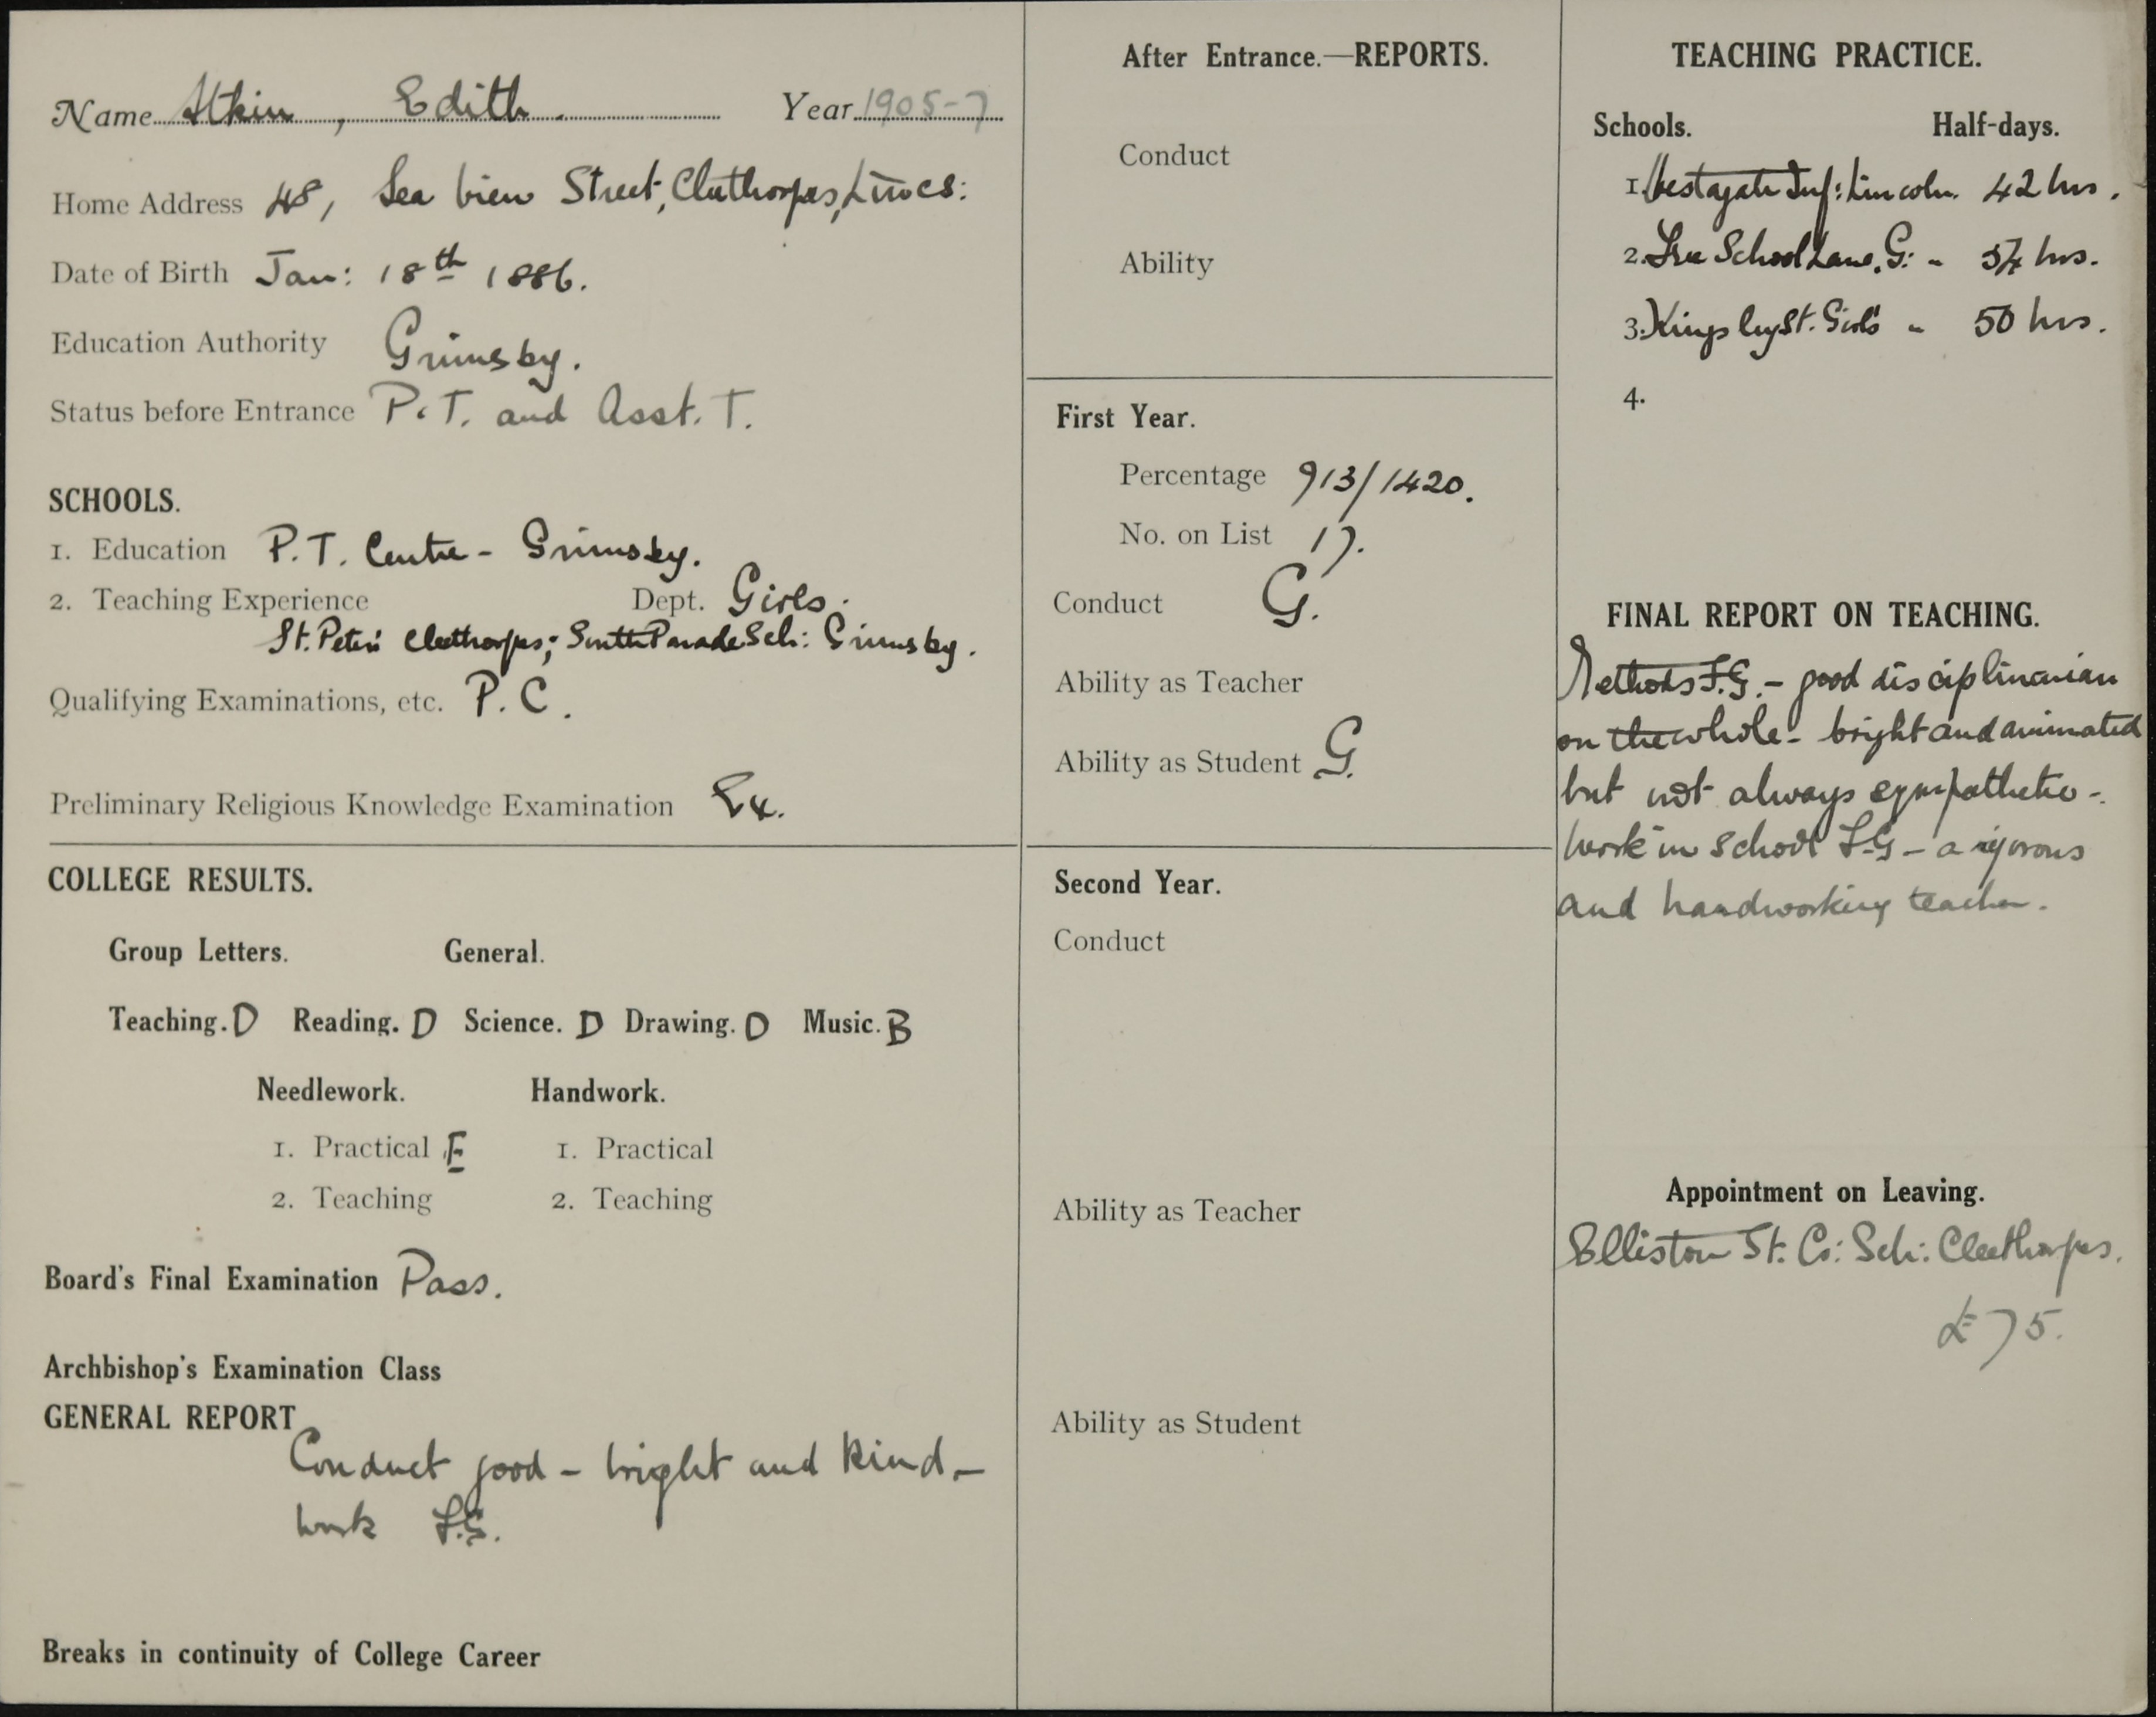 Name Atkin, Edith. Year 1905-7
Home Address 48, Sea View Street, Cleethorpes, Lincs:
Date of Birth Jan: 18th 1886.
Education Authority Grimsby.
Status before Entrance P.T. and Asst. T.
SCHOOLS.
1. Education P.T. Centre - Grimsby.
2. Teaching Experience Dept. Girls.
St. Peter's Cleethorpes; South Parade Sch: Grimsby.
Qualifying Examinations, etc. P.C.
Preliminary Religious Knowledge Examination Ex.
COLLEGE RESULTS.
Group Letters. General.
Teaching. D Reading. D Science. D Drawing. D Music. B
Needlework. Handwork.
1. Practical E 1. Practical
2. Teaching 2. Teaching
Board's Final Examination Pass.
Archbishop's Examination Class
GENERAL REPORT
Conduct good - bright and kind -
work F.G.
Breaks in continuity of College Career
After Entrance.—REPORTS.
Conduct
Ability
First Year.
Percentage 913/1420.
No. on List 17.
Conduct G.
Ability as Teacher
Ability as Student G.
Second Year.
Conduct
Ability as Teacher
Ability as Student
TEACHING PRACTICE.
Schools. Half-days.
1. Westgate Inf: Lincoln. 42 hrs.
2. Free School Lane. G: " hrs.
3. Kingsley St. Girls " 50 hrs.
4.
FINAL REPORT ON TEACHING.
Methods F.G. - good disciplinarian
on the whole - bright and animated
but not always sympathetic -
work in school F.G - a vigorous
and hardworking teacher.
Appointment on Leaving.
Elliston St. Co: Sch: Cleethorpes.
£75.